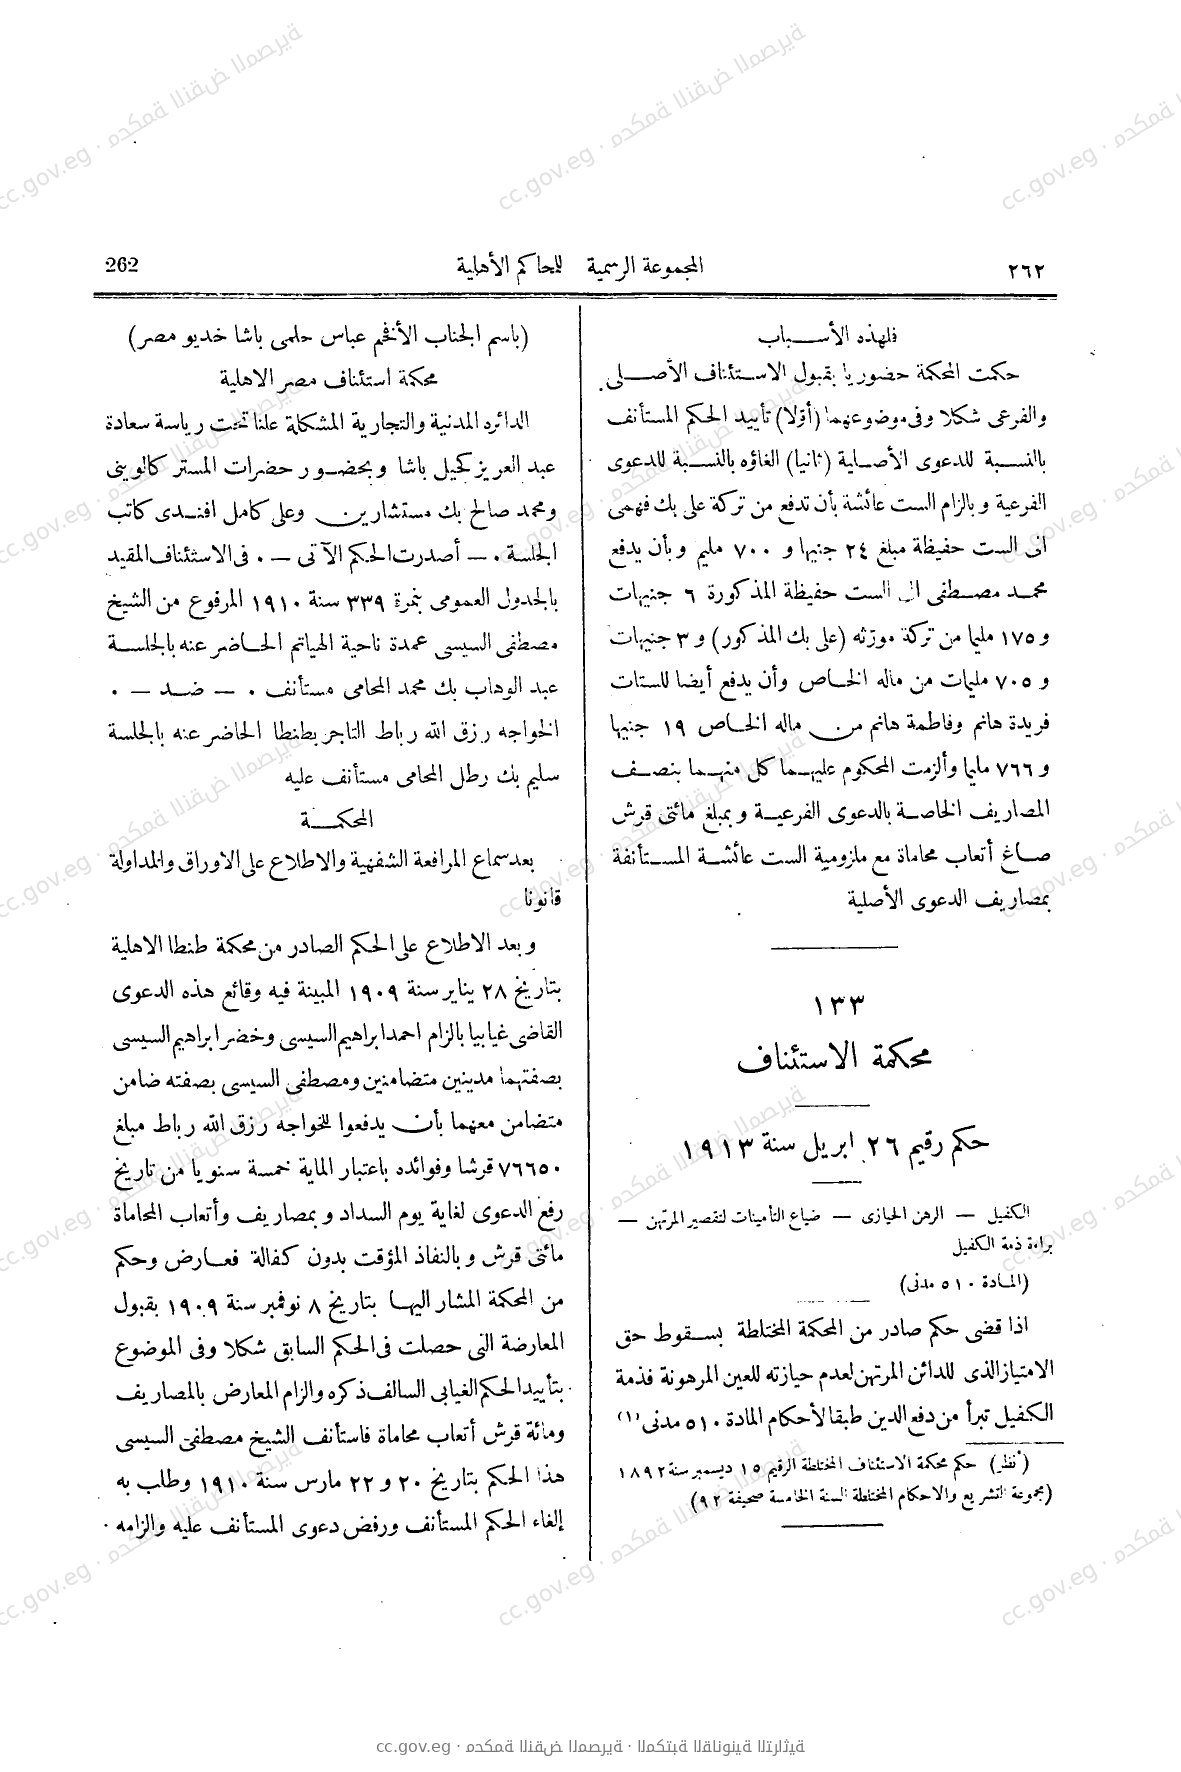 ٢٦٢
المجموعة الرسمية للمحاكم الأهلية
262
فلهذه الأسباب
حكمت المحكمة حضوريا بقبول الاستئناف الأصلى
والفرعى شكلا وفى موضوعهما (أوّلا) تأييد الحكم المستأنف
بالنسبة للدعوى الأصلية (ثانيا) الغاؤه بالنسبة للدعوى
الفرعية وبالزام الست عائشة بأن تدفع من تركة على بك فهمى
الى الست حفيظة مبلغ ٢٤ جنيها و ٧٠٠ مليم وبأن يدفع
محمد مصطفى الى الست حفيظة المذكورة ٦ جنيهات
و ١٧٥ مليما من تركة مورّثه (على بك المذكور) و ٣ جنيهات
و ٧٠٥ مليمات من ماله الخاص وأن يدفع أيضا للستات
فريدة هانم وفاطمة هانم من ماله الخاص ١٩ جنيها
و ٧٦٦ مليما وألزمت المحكوم عليهما كل منهما بنصف
المصاريف الخاصة بالدعوى الفرعية وبمبلغ مائتى قرش
صاغ أتعاب محاماة مع ملزومية الست عائشة المستأنفة
بمصاريف الدعوى الأصلية
١٣٣
محكمة الاستئناف
حكم رقيم ٢٦ ابريل سنة ١٩١٣
الكفيل — الرهن الحيازى — ضياع التأمينات لتقصير المرتهن —
براءة ذمة الكفيل
(المادة ٥١٠ مدنى)
اذا قضى حكم صادر من المحكمة المختلطة بسقوط حق
الامتياز الذى للدائن المرتهن لعدم حيازته للعين المرهونة فذمة
الكفيل تبرأ من دفع الدين طبقا لأحكام المادة ٥١٠ مدنى (١)
(أنظر) حكم محكمة الاستئناف المختلطة الرقيم ١٥ ديسمبر سنة ١٨٩٢
(مجموعة التشريع والاحكام المختلطة السنة الخامسة صحيفة ٩٢)
(باسم الجناب الأفخم عباس حلمى باشا خديو مصر)
محكمة استئناف مصر الاهلية
الدائره المدنية والتجارية المشكلة علنا تحت رياسة سعادة
عبد العزيز كحيل باشا وبحضور حضرات المستر كالوينى
ومحمد صالح بك مستشارين وعلى كامل افندى كاتب
الجلسة . — أصدرت الحكم الآتى — . فى الاستئناف المقيد
بالجدول العمومى بنمرة ٣٣٩ سنة ١٩١٠ المرفوع من الشيخ
مصطفى السيسى عمدة ناحية الهياتم الحاضر عنه بالجلسة
عبد الوهاب بك محمد المحامى مستأنف . — ضد — .
الخواجه رزق الله رباط التاجر بطنطا الحاضر عنه بالجلسة
سليم بك رطل المحامى مستأنف عليه
المحكمة
بعد سماع المرافعة الشفهية والاطلاع على الاوراق والمداولة
قانونا
وبعد الاطلاع على الحكم الصادر من محكمة طنطا الاهلية
بتاريخ ٢٨ يناير سنة ١٩٠٩ المبينة فيه وقائع هذه الدعوى
القاضى غيابيا بالزام احمد ابراهيم السيسى وخضر ابراهيم السيسى
بصفتهما مدينين متضامنين ومصطفى السيسى بصفته ضامن
متضامن معهما بأن يدفعوا للخواجه رزق الله رباط مبلغ
٧٦٦٥٠ قرشا وفوائده باعتبار الماية خمسة سنويا من تاريخ
رفع الدعوى لغاية يوم السداد وبمصاريف وأتعاب المحاماة
مائتى قرش وبالنفاذ المؤقت بدون كفالة فعارض وحكم
من المحكمة المشار اليها بتاريخ ٨ نوفمبر سنة ١٩٠٩ بقبول
المعارضة التى حصلت فى الحكم السابق شكلا وفى الموضوع
بتأييد الحكم الغيابى السالف ذكره والزام المعارض بالمصاريف
ومائة قرش أتعاب محاماة فاستأنف الشيخ مصطفى السيسى
هذا الحكم بتاريخ ٢٠ و ٢٢ مارس سنة ١٩١٠ وطلب به
إلغاء الحكم المستأنف ورفض دعوى المستأنف عليه والزامه
cc.gov.eg · محكمة النقض المصرية · المكتبة القانونية التراثية